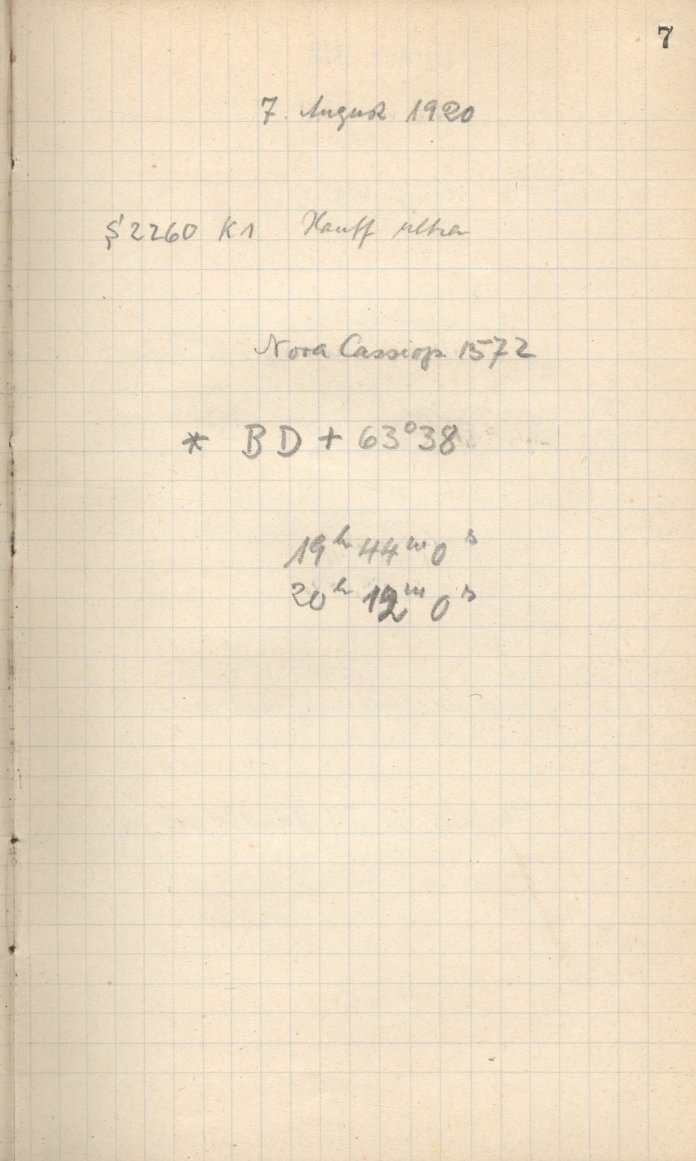 7
7. August 1920
S 2260 K1 Hauff ultra
Nova Cassiop 1572
* BD + 63°38
19ʰ 44ᵐ 0ˢ
20ʰ 12ᵐ 0ˢ